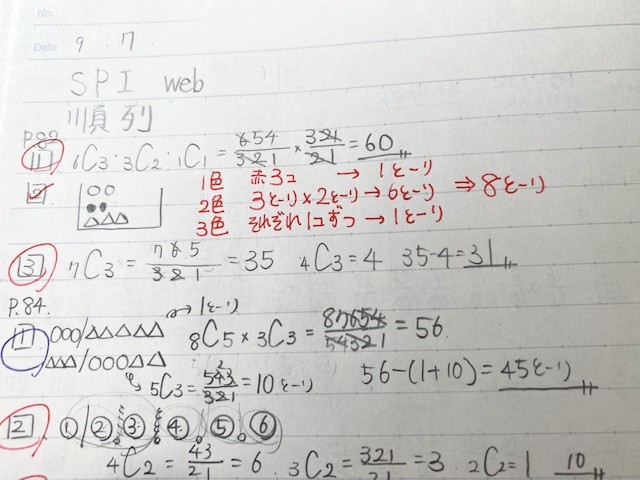 No.
Date 9 . 7 .
SPI web
順列
P.82
1 6C3・3C2・1C1 = 654/321 × 321/21 = 60
2 ○○ ●● △△△
1色 赤3コ → 1とーり
2色 3とーり×2とーり → 6とーり ⇒ 8とーり
3色 それぞれ1コずつ → 1とーり
3 7C3 = 765/321 = 35 4C3 = 4 35-4 = 31
P.84.
→ 1とーり
1 ○○○/△△△△△ 8C5 × 3C3 = 87654/54321 = 56
△△△/○○○△△ 5C3 = 543/321 = 10とーり 56-(1+10) = 45とーり
2 ① ② ③ ④ ⑤ ⑥
4C2 = 43/21 = 6 . 3C2 = 321/21 = 3 . 2C2 = 1 10